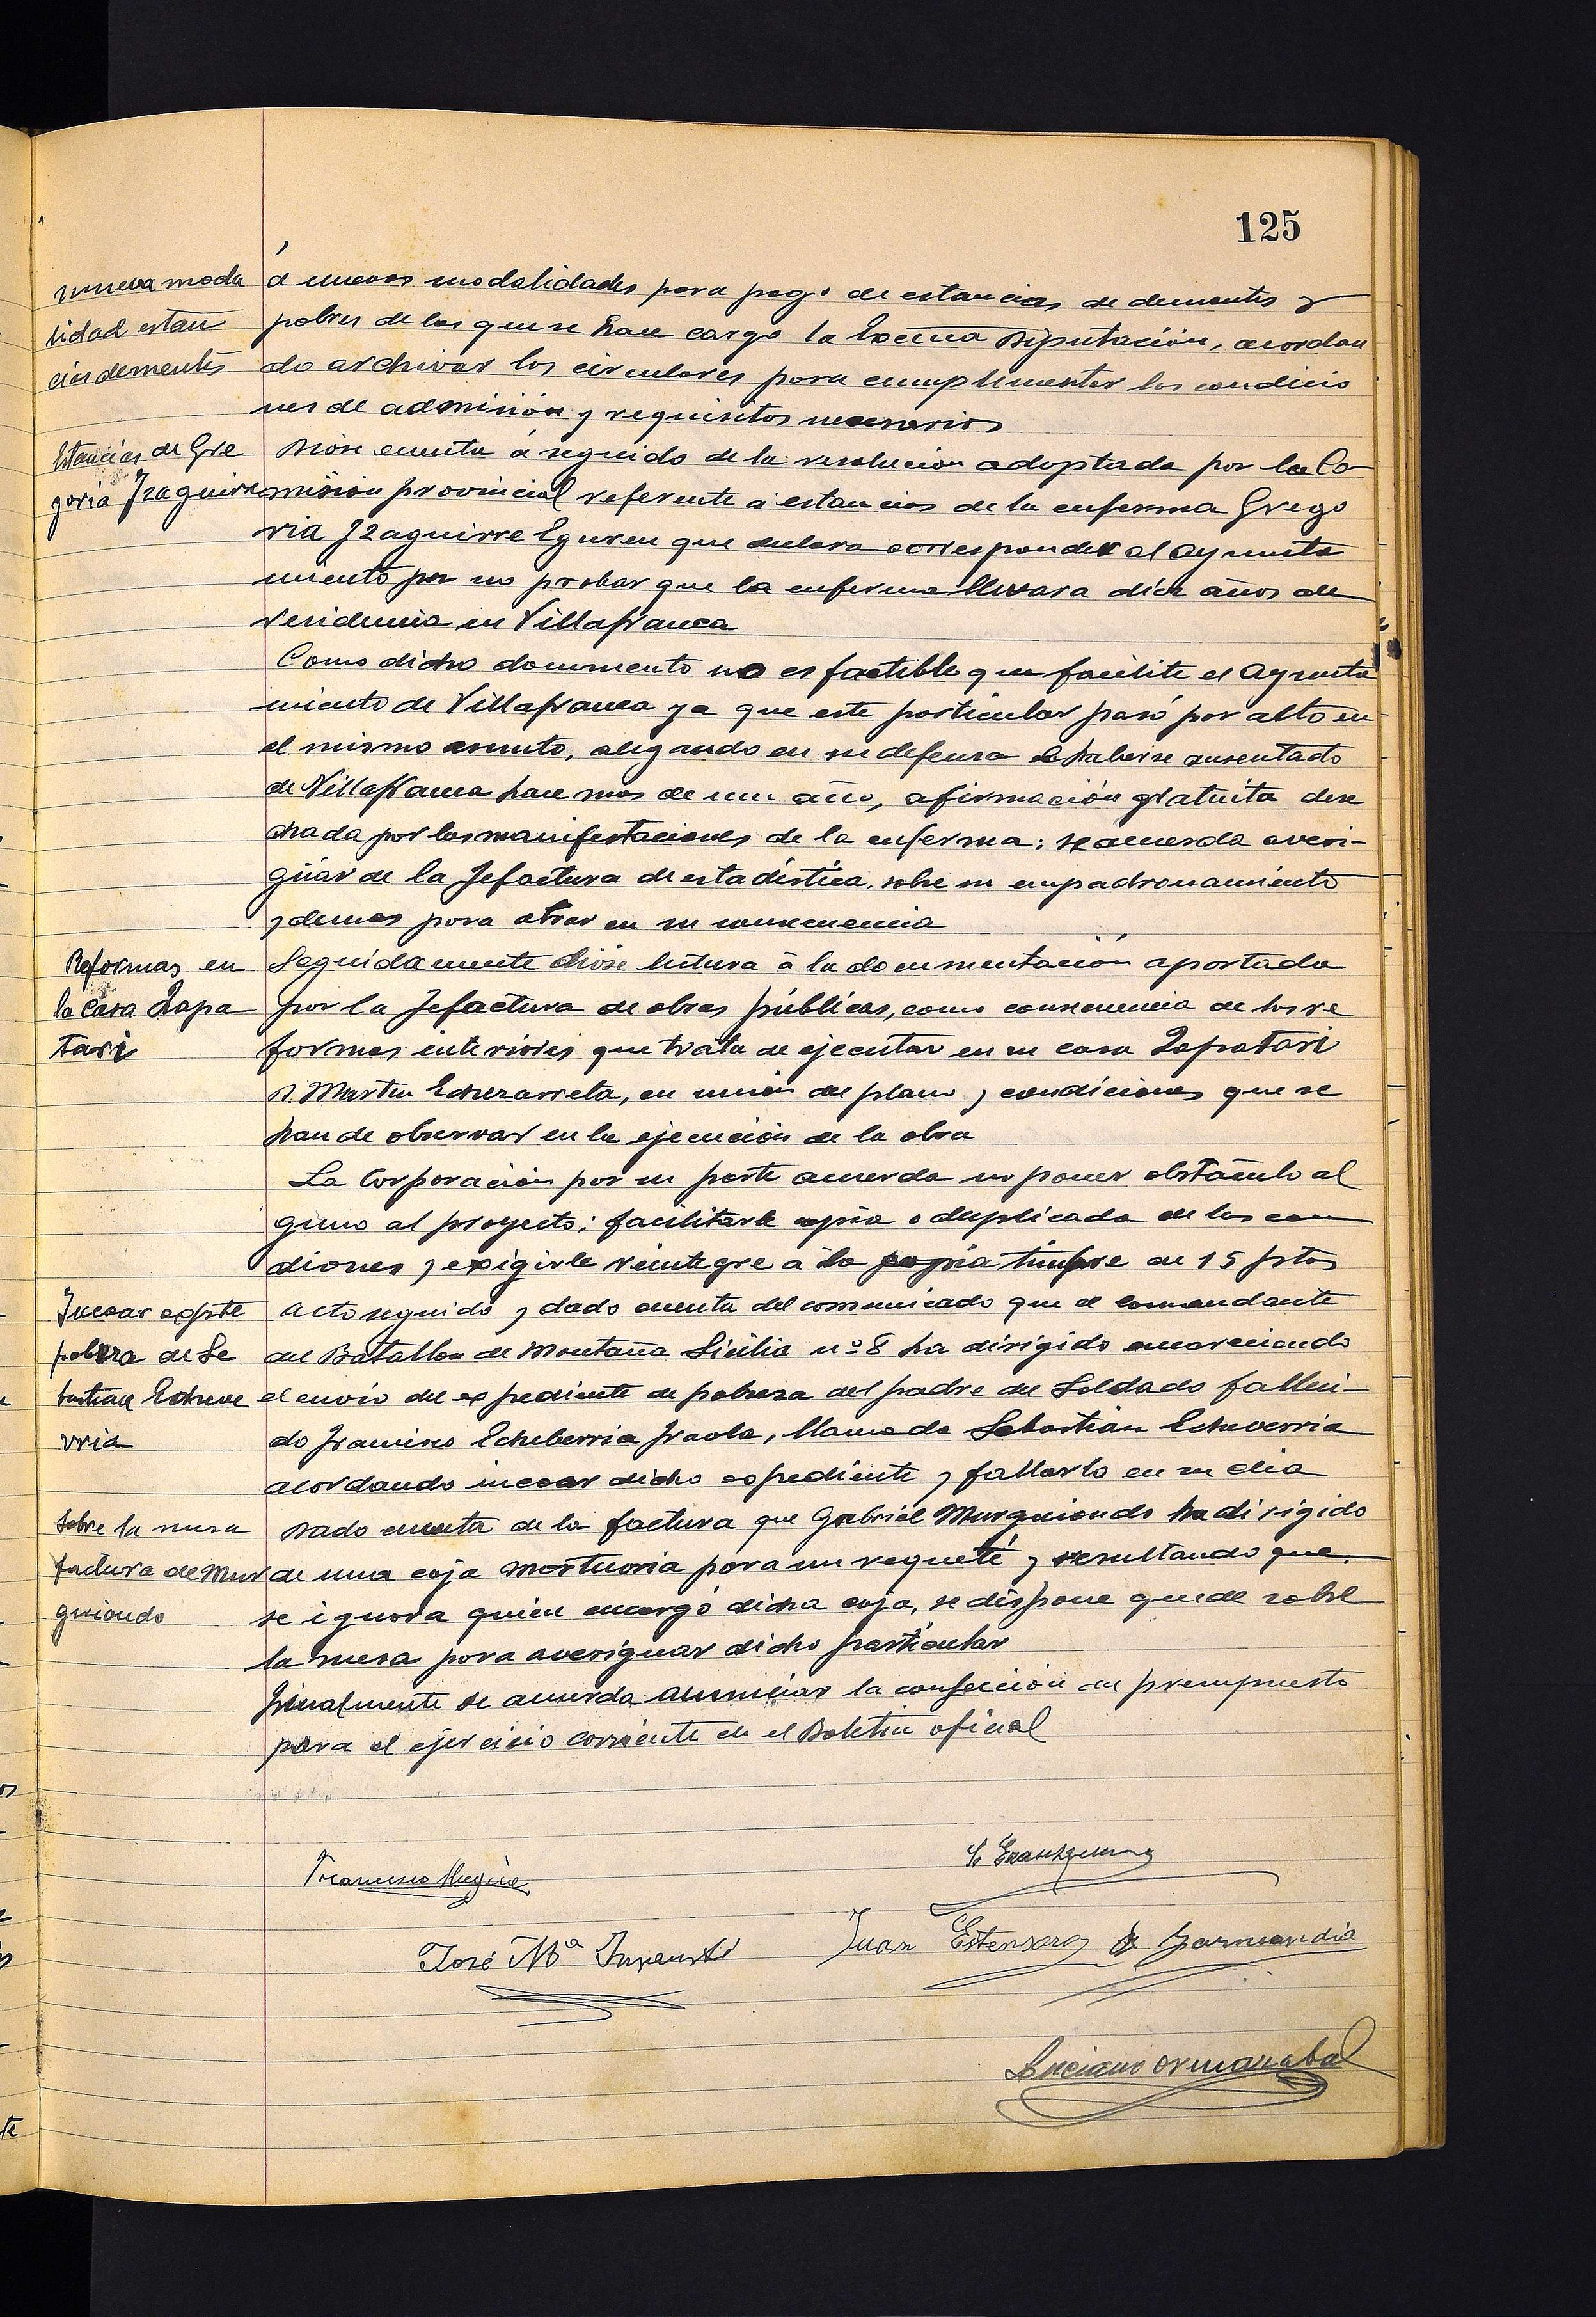 125
nueva moda
lidad estan
cias dementes
á nuevas modalidades para pago de estancias de dementes y
pobres de los que se hace cargo la Excma Diputación, acordan
do archivar los circulares para cumplimentar los condicio
nes de admisión y requisitos necesarios
Estancias de Gre
goria Izaguirre
Dióse cuenta á seguido de la resolución adoptada por la Co-
misión provincial referente á estancias de la enferma Grego
ria Izaguirre Eguren que declara corresponder al Ayunta
miento por no probar que la enferma llevara diez años de
residencia en Villafranca
Como dicho documento no es factible que facilite el Ayunta
miento de Villafranca ya que este particular pasó por alto en
el mismo asunto, alegando en su defensa el haberse ausentado
de Villafranca hace mas de un año, afirmación gratuita dese
chada por las manifestaciones de la enferma; se acuerda averi-
güar de la Jefactura de estadística sobre su empadronamiento
y demas para obrar en su consecuencia
Reformas en
la Casa Zapa
tari
Seguidamente dióse lectura á la documentación aportada
por la Jefactura de obras públicas, como consecuencia de los re
formas interiores que trata de ejecutar en su casa Zapatari
D. Martin Echezarreta, en unión del plano y condiciones que se
han de observar en la ejecución de la obra
La Corporación por su parte acuerda no poner obstáculo al
guno al proyecto; facilitarle copia o duplicado de las con
diones y exigirle reintegre á la copia timbre de 15 ptas
Incoar expte
pobreza de Se
bastian Echeve
rria
Acto seguido y dado cuenta del comunicado que el comandante
del Batallon de Montaña Sicilia nº 8 ha dirigido encareciendo
el envío del expediente de pobreza del padre del Soldado falleci-
do Francisco Echeberria Iraola, llamado Sebastián Echeverria
acordando incoar dicho expediente y fallarlo en su dia
Sobre la mesa
factura de Mur
guiondo
Dado cuenta de la factura que Gabriel Murguiondo ha dirigido
de una caja mortuoria para un requeté y resultando que
se ignora quien encargó dicha caja, se dispone quede sobre
la mesa para averiguar dicho particular
Finalmente se acuerda anunciar la confección del presupuesto
para el ejercicio corriente en el Boletin oficial
Francisco
José Mª
Juan Estensoro Garmendia
Luciano Ormazabal